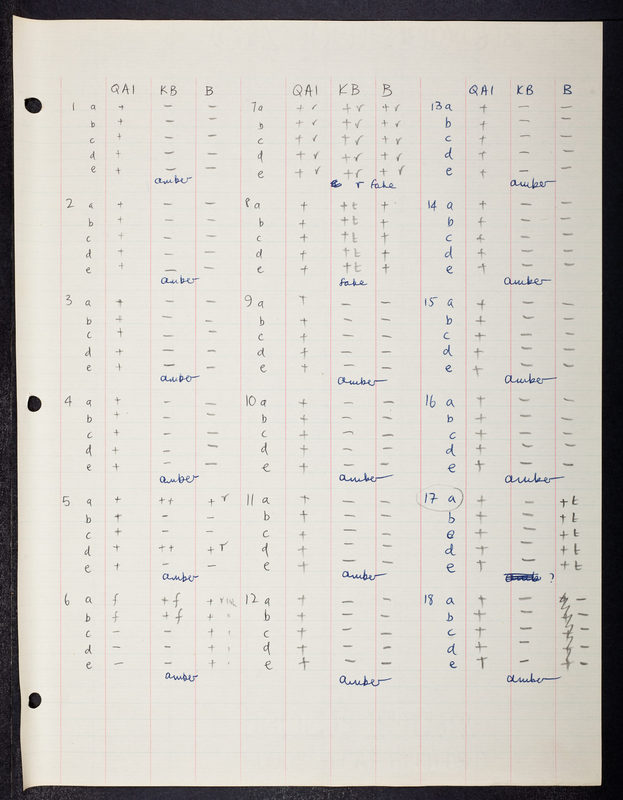 QA1 KB B QA1 KB B QA1 KB B
1 a + − − 7a + r + r + r 13a + − −
b + − − b + r + r + r b + − −
c + − − c + r + r + r c + − −
d + − − d + r + r + r d + − −
e + − − e + r + r + r e + − −
amber r fake amber
2 a + − − 8a + + t + 14 a + − −
b + − − b + + t + b + − −
c + − − c + + t + c + − −
d + − − d + + t + d + − −
e + − − e + + t + e + − −
amber fake amber
3 a + − − 9 a + − − 15 a + − −
b + − − b + − − b + − −
c + − − c + − − c + − −
d + − − d + − − d + − −
e + − − e + − − e + − −
amber amber amber
4 a + − − 10 a + − − 16 a + − −
b + − − b + − − b + − −
c + − − c + − − c + − −
d + − − d + − − d + − −
e + − − e + − − e + − −
amber amber amber
5 a + ++ + r 11 a + − − 17 a + − + t
b + − − b + − − b + − + t
c + − − c + − − c + − + t
d + ++ + r d + − − d + − + t
e + − − e + − − e + − + t
amber amber ?
6 a f + f + r 12 a + − − 18 a + − −
b f + f + b + − − b + − −
c − − + c + − − c + − −
d − − + d + − − d + − −
e − − + e + − − e + − −
amber amber amber